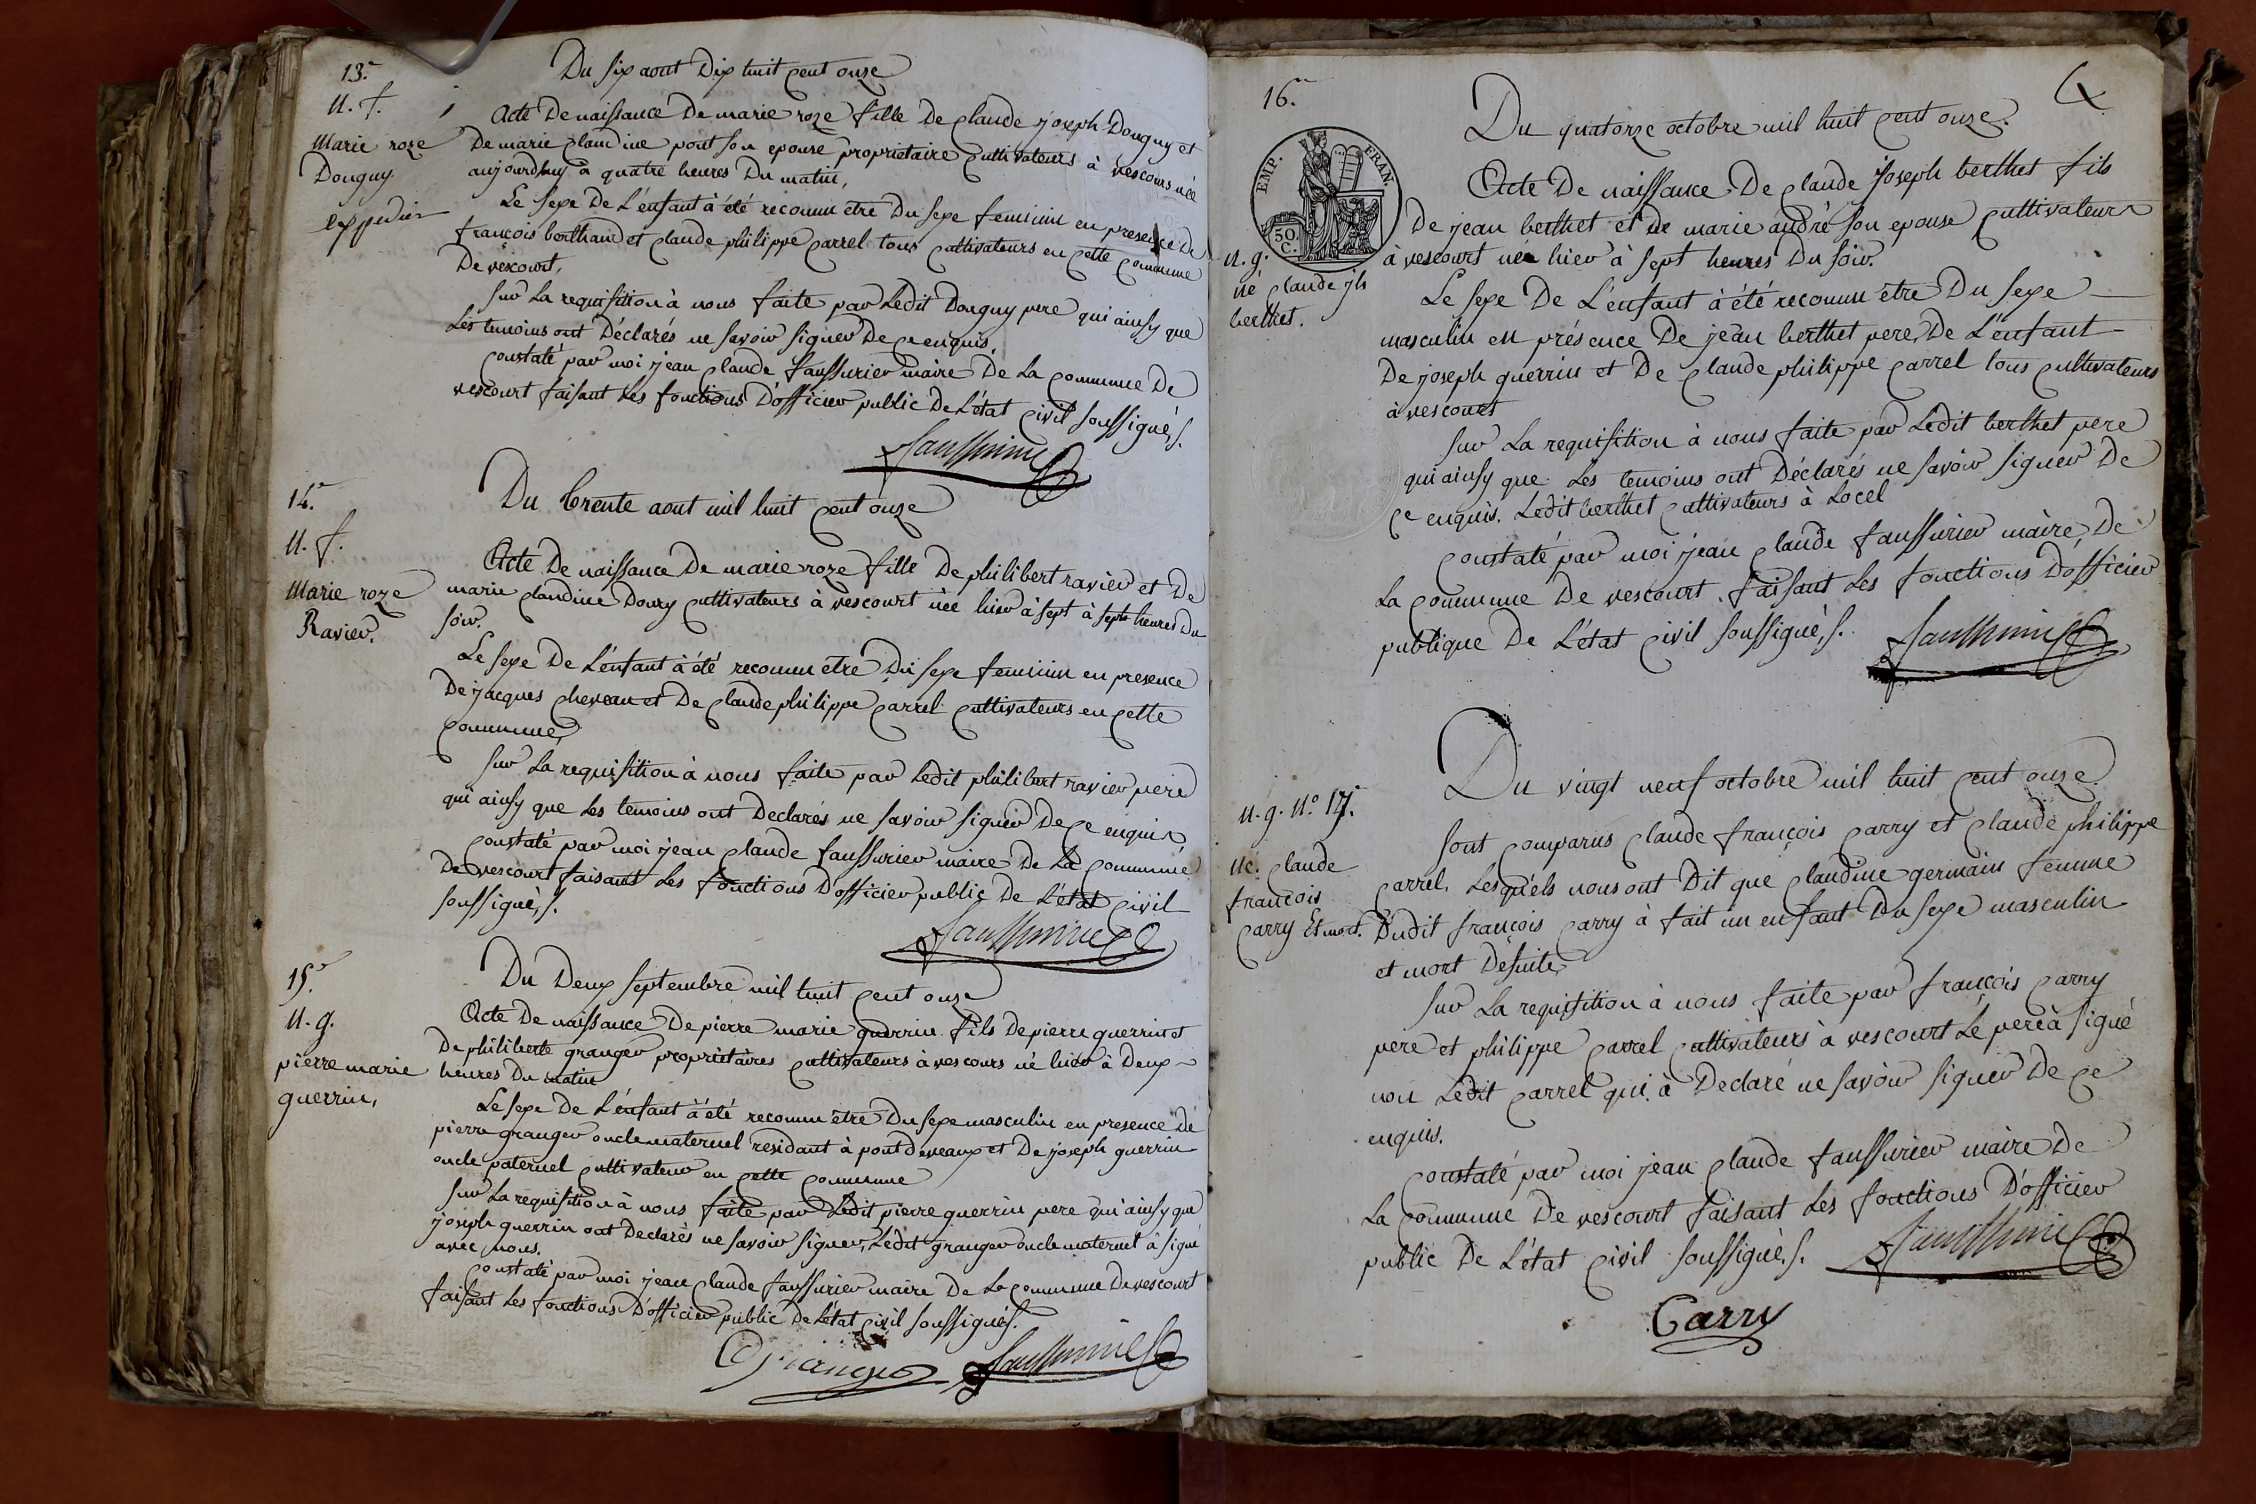 13.e
N. f.
Marie roze
Douguy
expedier
Du six aout Dix huit cent onze
Acte De naissance De marie roze fille De claude joseph Douguy et
De marie claudine pont son epouse proprietaire cultivateurs à vescours née
aujourdhuy à quatre heures Du matin,
Le sexe De L'enfant à été reconnu etre Du sexe feminin en presence De
françois berthaud et claude philippe carrel tous cultivateurs en cette commune
De vescourt,
sur La requisition à nous faite par Ledit Douguy pere qui ainsy que
Les temoins ont Déclarés ne savoir signer De ce enquis,
constaté par moi jean claude faussurier maire De La commune De
vescourt faisant Les fonctions D'officier public De L'état civil soussigné, s.
14.e
N. f.
Marie roze
Ravier.
Du trente aout mil huit cent onze
Acte De naissance De marie roze fille De philibert ravier et De
marie claudine Doury cultivateurs à vescourt née hier à sept à sept heures Du
soir.
Le sexe De L'enfant à été reconnu etre Du sexe feminin en presence
De jacques cheveau et De claude philippe carrel cultivateurs en cette
commune,
sur La requisition à nous faite par Ledit philibert ravier pere
qui ainsy que Les temoins ont Declarés ne savoir signer De ce enquis
constaté par moi jean claude faussurier maire De La commune
De vescourt faisant Les fonctions D'officier public De L'état civil
soussigné, s.
15.e
N. g.
pierre marie
guerrin,
Du Deux septembre mil huit cent onze
Acte De naissance De pierre marie guerrin fils De pierre guerrin et
De philiberte granger propriétaires cultivateurs à vescours né hier à Deux
heures Du matin
Le sexe De L'enfant à été reconnu etre Du sexe masculin en presence De
pierre granger oncle maternel residant à pont deveaux et De joseph guerrin
oncle paternel cultivateur en cette commune
sur La requisition à nous faite par Ledit pierre guerrin pere qui ainsy que
joseph guerrin ont Declarés ne savoir signer, Ledit granger oncle maternel à signé
avec nous.
constaté par moi jean claude faussurier maire De La commune De vescourt
faisant Les fonctions D'officier public De L'état civil soussigné, s.
16.e
EMP. FRAN.
50
C.
N. g.
né claude jh
berthet.
Du quatorze octobre mil huit cent onze.
Acte De naissance De claude joseph berthet fils
De jean berthet et de marie andré son epouse cultivateurs
à vescourt née hier à sept heures Du soir.
Le sexe De L'enfant à été reconnu etre Du sexe
masculin en présence De jean berthet pere De L'enfant
De joseph guerrin et De claude philippe carrel tous cultivateurs
à vescours
sur La requisition à nous faite par Ledit berthet pere
qui ainsy que Les temoins ont Déclarés ne savoir signer De
ce enquis. Ledit berthet cultivateurs à Locel
constaté par moi jean claude faussurier maire De
La commune De vescourt. faisant Les fonctions D'officier
publique De L'état civil soussigné, s.
N. g. N.o 17.e
né. claude
françois
carry Et mort.
Du vingt neuf octobre mil huit cent onze
sont comparus claude françois carry et claude philippe
carrel. Lesquels nous ont Dit que claudine germain femme
Dudit françois carry à fait un enfant Du sexe masculin
et mort Desuite,
sur La requisition à nous faite par françois carry
pere et philippe carrel cultivateurs à vescourt Le pere à signé
non Ledit carrel qui à Declaré ne savoir signer De ce
enquis.
constaté par moi jean claude faussurier maire De
La commune De vescourt faisant Les fonctions D'officier
public De L'état civil soussigné, s.
Carry